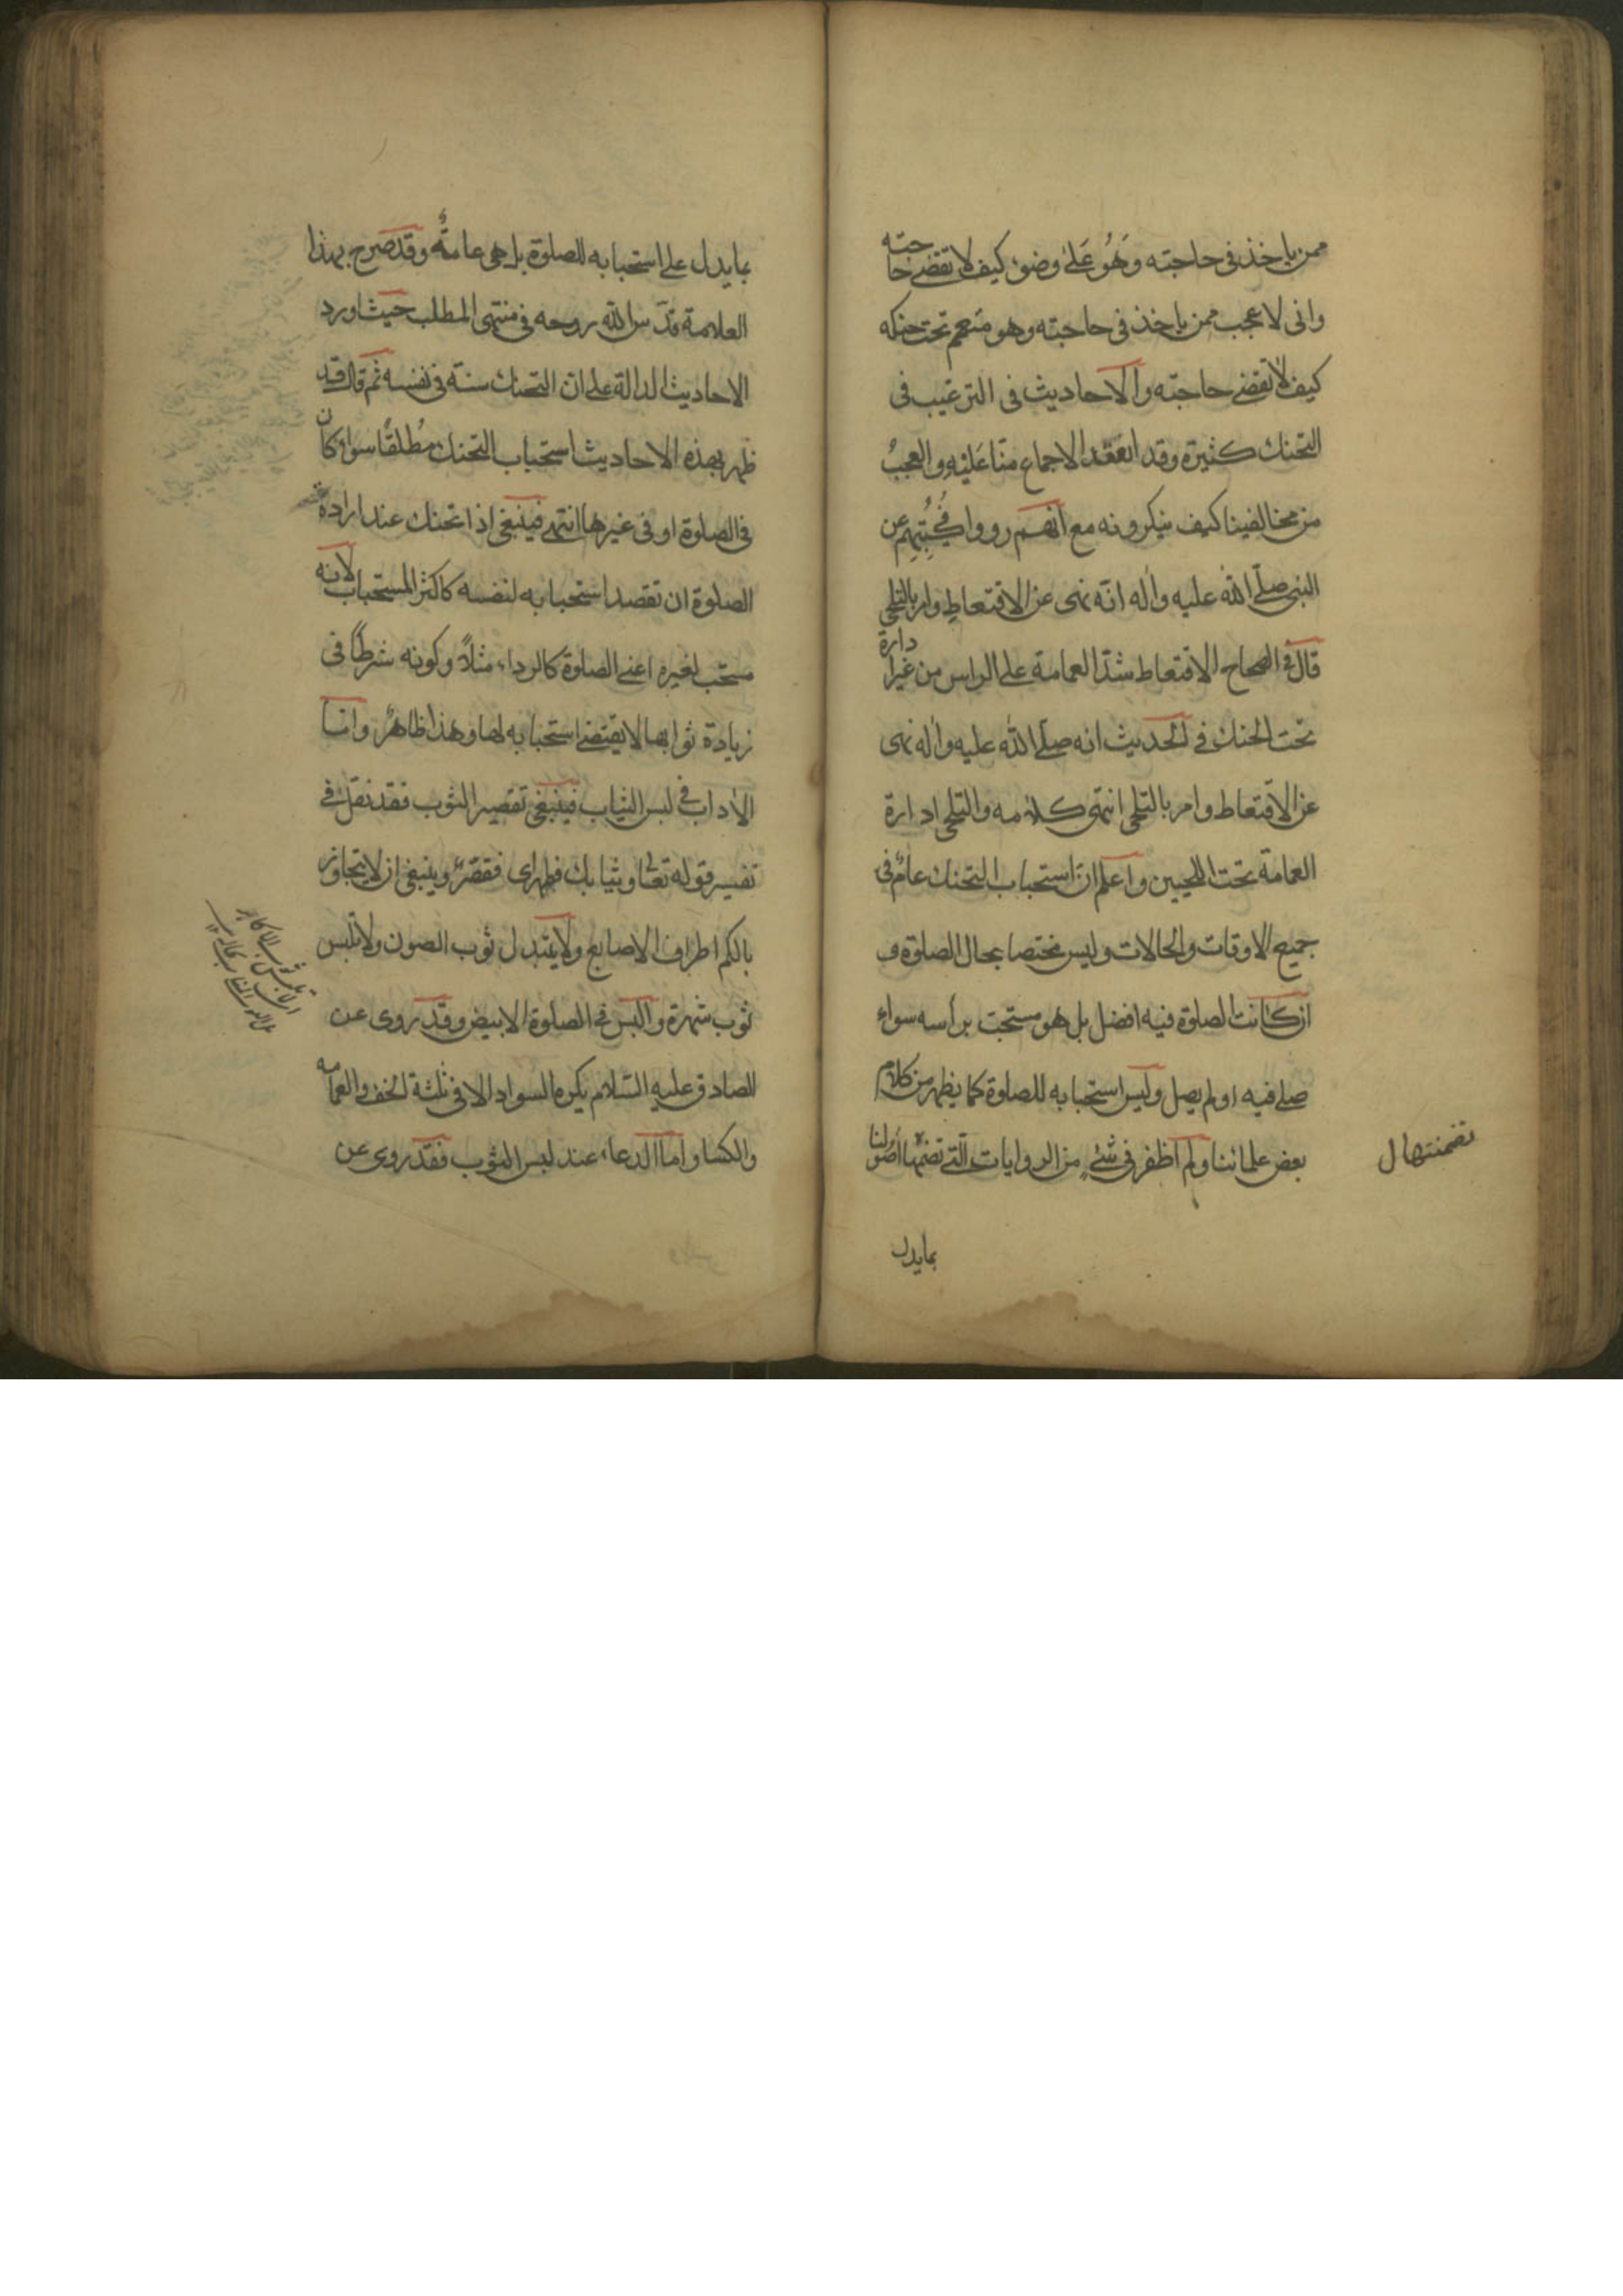 ممن ياخذ فى حاجته وهُو عَلىٰ وضوء كيف لا تقضى حاجته
وانى لاعجب ممن ياخذ فى حاجته وهو متعمم تحت حنكه
كيف لا تقضى حاجته والاحاديث فى الترغيب فى
التحنك كثيرة وقد انعَقد الاجماع منّا عَليْه والعجبُ
من مخالفينا كيف ينكرونه مع انهم رووا فى كُتُبِهم عن
النبى صلّى الله عليه واٰله انّه نهى عن الاقتعاطِ وامر بالتلحى
قال فى الصحاح الاقتعاط شدّ العمامة على الراس من غير ادارة
تحت الحنك فى الحديث انه صلّى اللّٰه عليه واٰله نهى
عن الاقتعاط وامر بالتلحى انتهى كلامه والتلحى ادارة
العمامة تحت اللحيين واعلم انّ استحباب التحنك عامٌ فى
جميع الاوقات والحالات وليس مختصا بحال الصلوة و
ان كانت الصلوة فيه افضل بل هو مستحبّ برأسه سواء
صلى فيه او لم يصل وليس استحبابه للصلوة كما يظهر من كلام
بعض علمائنا ولم اظفر فى شئٍ من الروايات الّتى تضمّنها اُصُولنا
تضمنتها ل
بما يدل
بما يدل على استحبابه للصلوة بل هى عامةٌ وقد صرح بهذا
العلامة قدّس اللّه روحه فى منتهى المطلب حيث اورد
الاحاديث الدالة على انّ التحنك سنة فى نفسه ثم قال قد
ظهر بهذه الاحاديث استحباب التحنك مُطلقًا سواء كان
فى الصلوة او فى غيرها انتهى فينبغى اذا تحنك عند ارادة
الصلوة ان تقصد استحبابه لنفسه كاكثر المستحبات لانه
مستحب لغيره اعنى الصلوة كالرداء مثلاً وكونه شرطًا فى
زيادة ثوابها لا يقتضى استحبابه لها وهذا ظاهرٌ وامّا
الاٰداب فى لبس الثياب فينبغى تقصير الثوب فقد نقل فى
تفسير قوله تعالى وثيابك فطهر اى فقصّر وينبغى ان لا يتجاوز
بالكم اطراف الاصابع ولا يبتذل ثوب الصون ولا تلبس
ثوب شهرة والبس فى الصلوة الابيض وقد روى عن
الصادق عليه السّلام يكره السواد الا فى ثلثة الخف والعمامه
والكسا واما الدعاء عند لبس الثوب فقد روى عن